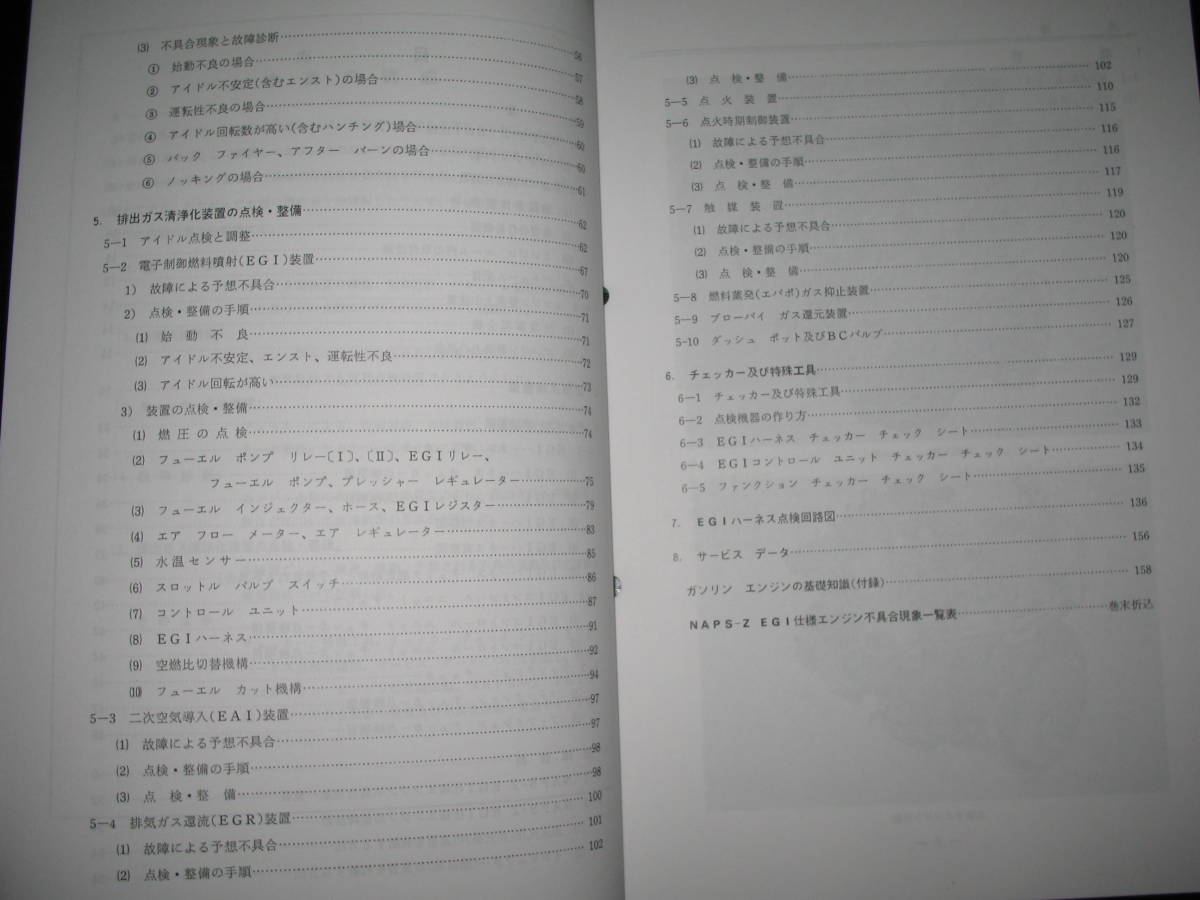 ⑶ 不具合現象と故障診断……56
① 始動不良の場合……57
② アイドル不安定(含むエンスト)の場合……58
③ 運転性不良の場合……59
④ アイドル回転数が高い(含むハンチング)場合……60
⑤ バック ファイヤー、アフター バーンの場合……60
⑥ ノッキングの場合……61
5. 排出ガス清浄化装置の点検・整備……62
5―1 アイドル点検と調整……62
5―2 電子制御燃料噴射(EGI)装置……67
1) 故障による予想不具合……70
2) 点検・整備の手順……71
⑴ 始動不良……71
⑵ アイドル不安定、エンスト、運転性不良……72
⑶ アイドル回転が高い……73
3) 装置の点検・整備……74
⑴ 燃圧の点検……74
⑵ フューエル ポンプ リレー〔Ⅰ〕、〔Ⅱ〕、EGIリレー、
フューエル ポンプ、プレッシャー レギュレーター……75
⑶ フューエル インジェクター、ホース、EGIレジスター……79
⑷ エア フロー メーター、エア レギュレーター……83
⑸ 水温センサー……85
⑹ スロットル バルブ スイッチ……86
⑺ コントロール ユニット……87
⑻ EGIハーネス……91
⑼ 空燃比切替機構……92
⑽ フューエル カット機構……94
5―3 二次空気導入(EAI)装置……97
⑴ 故障による予想不具合……97
⑵ 点検・整備の手順……98
⑶ 点検・整備……98
5―4 排気ガス還流(EGR)装置……100
⑴ 故障による予想不具合……101
⑵ 点検・整備の手順……102
⑶ 点検・整備……102
5―5 点火装置……110
5―6 点火時期制御装置……115
⑴ 故障による予想不具合……116
⑵ 点検・整備の手順……116
⑶ 点検・整備……117
5―7 触媒装置……119
⑴ 故障による予想不具合……120
⑵ 点検・整備の手順……120
⑶ 点検・整備……120
5―8 燃料蒸発(エバポ)ガス抑止装置……125
5―9 ブローバイ ガス還元装置……126
5-10 ダッシュ ポット及びBCバルブ……127
6. チェッカー及び特殊工具……129
6―1 チェッカー及び特殊工具……129
6―2 点検機器の作り方……132
6―3 EGIハーネス チェッカー チェック シート……133
6―4 EGIコントロール ユニット チェッカー チェック シート……134
6―5 ファンクション チェッカー チェック シート……135
7. EGIハーネス点検回路図……136
8. サービス データ……156
ガソリン エンジンの基礎知識(付録)……158
NAPS-Z EGI仕様エンジン不具合現象一覧表……巻末折込